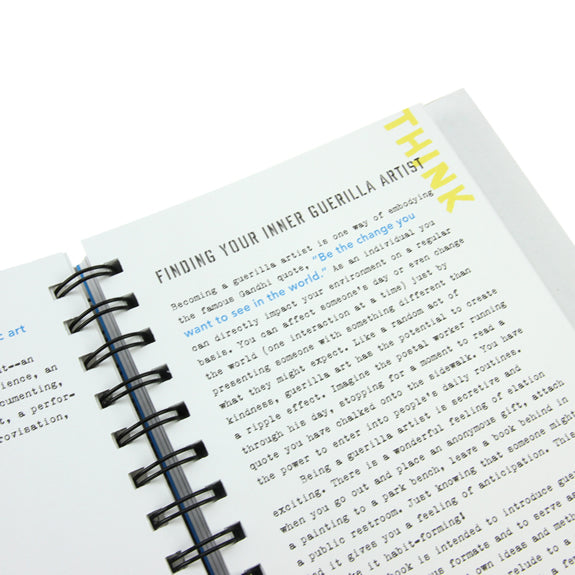 c art
t--an
ience, an
cumenting,
t, a perfor-
rovisation,
THINK
FINDING YOUR INNER GUERILLA ARTIST
Becoming a guerilla artist is one way of embodying
the famous Gandhi quote, "Be the change you
want to see in the world." As an individual you
can directly impact your environment on a regular
basis. You can affect someone's day or even change
the world (one interaction at a time) just by
presenting someone with something different than
what they might expect. Like a random act of
kindness, guerilla art has the potential to create
a ripple effect. Imagine the postal worker running
through his day, stopping for a moment to read a
quote you have chalked onto the sidewalk. You have
the power to enter into people's daily routines.
Being a guerilla artist is secretive and
exciting. There is a wonderful feeling of elation
when you go out and place an anonymous gift, attach
a painting to a park bench, leave a book behind in
a public restroom. Just knowing that someone might
d it gives you a feeling of anticipation. This
ke it habit-forming!
ook is intended to introduce gue
ous formats and to serve as
own ideas and meth
relude to a